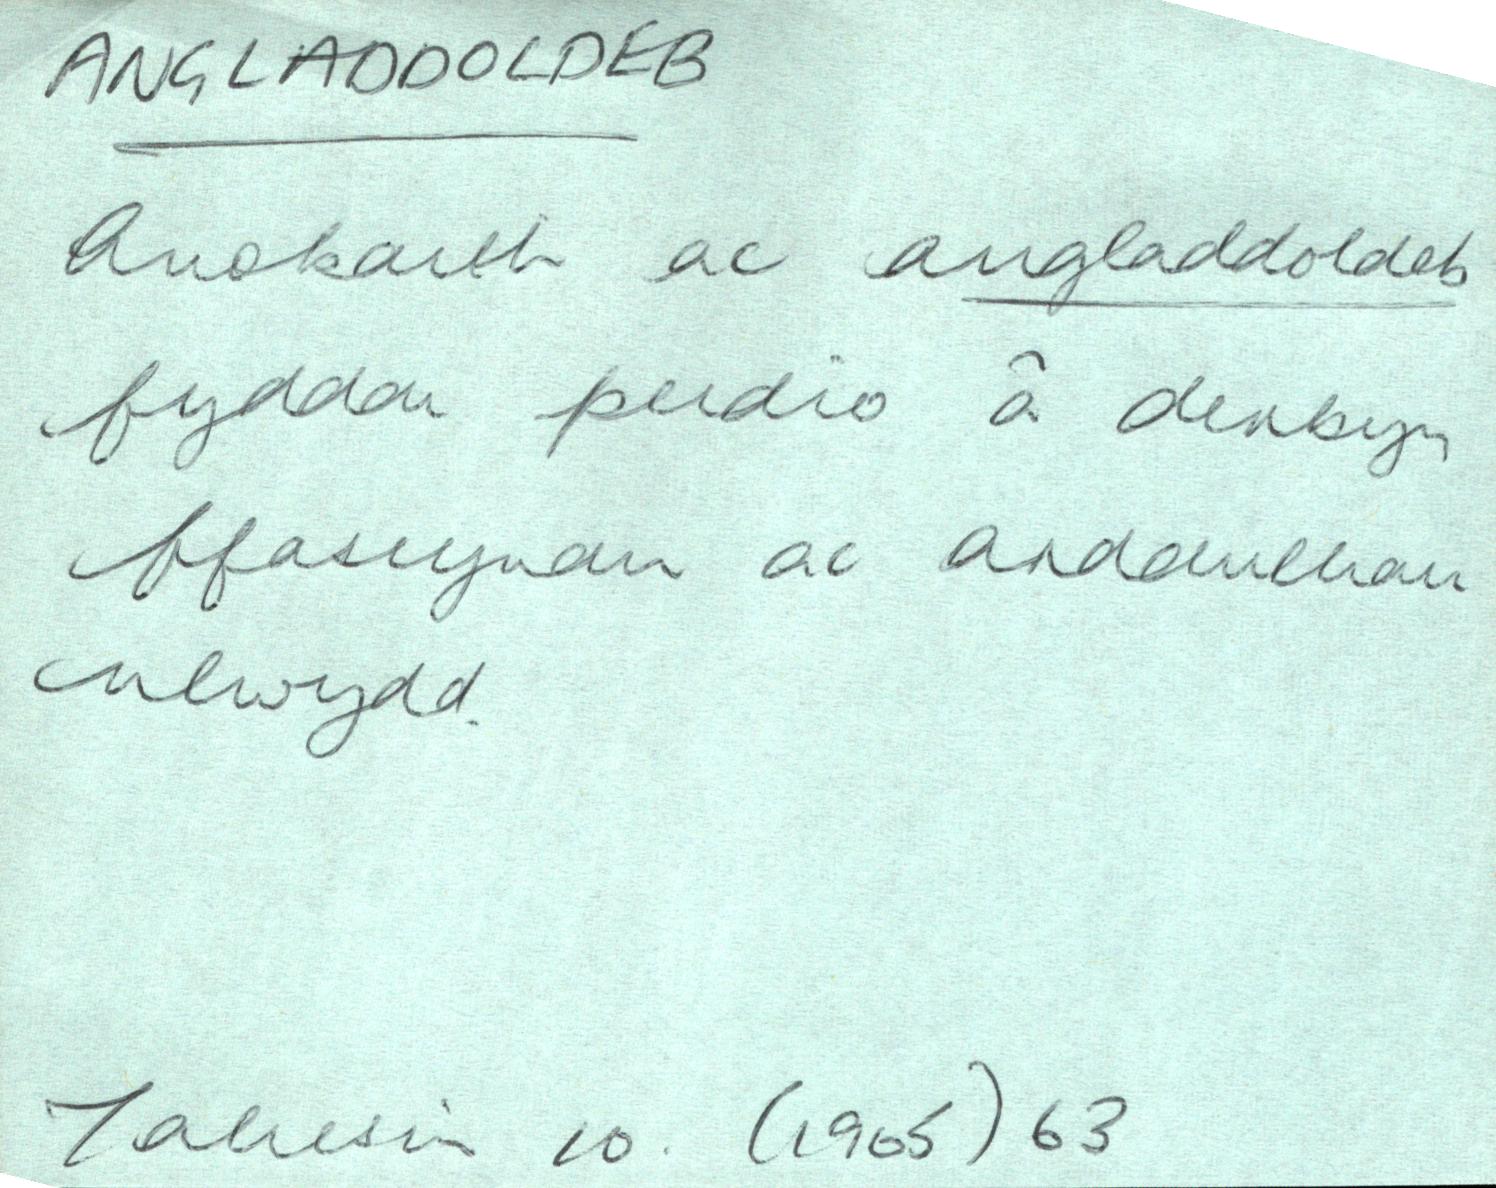 ANGLADDOLDEB
Anobaith ac angladdoldeb
fyddai peidio â derbyn
ffasiynau ac arddulliau
newydd.
Taliesin 10. (1965) 63